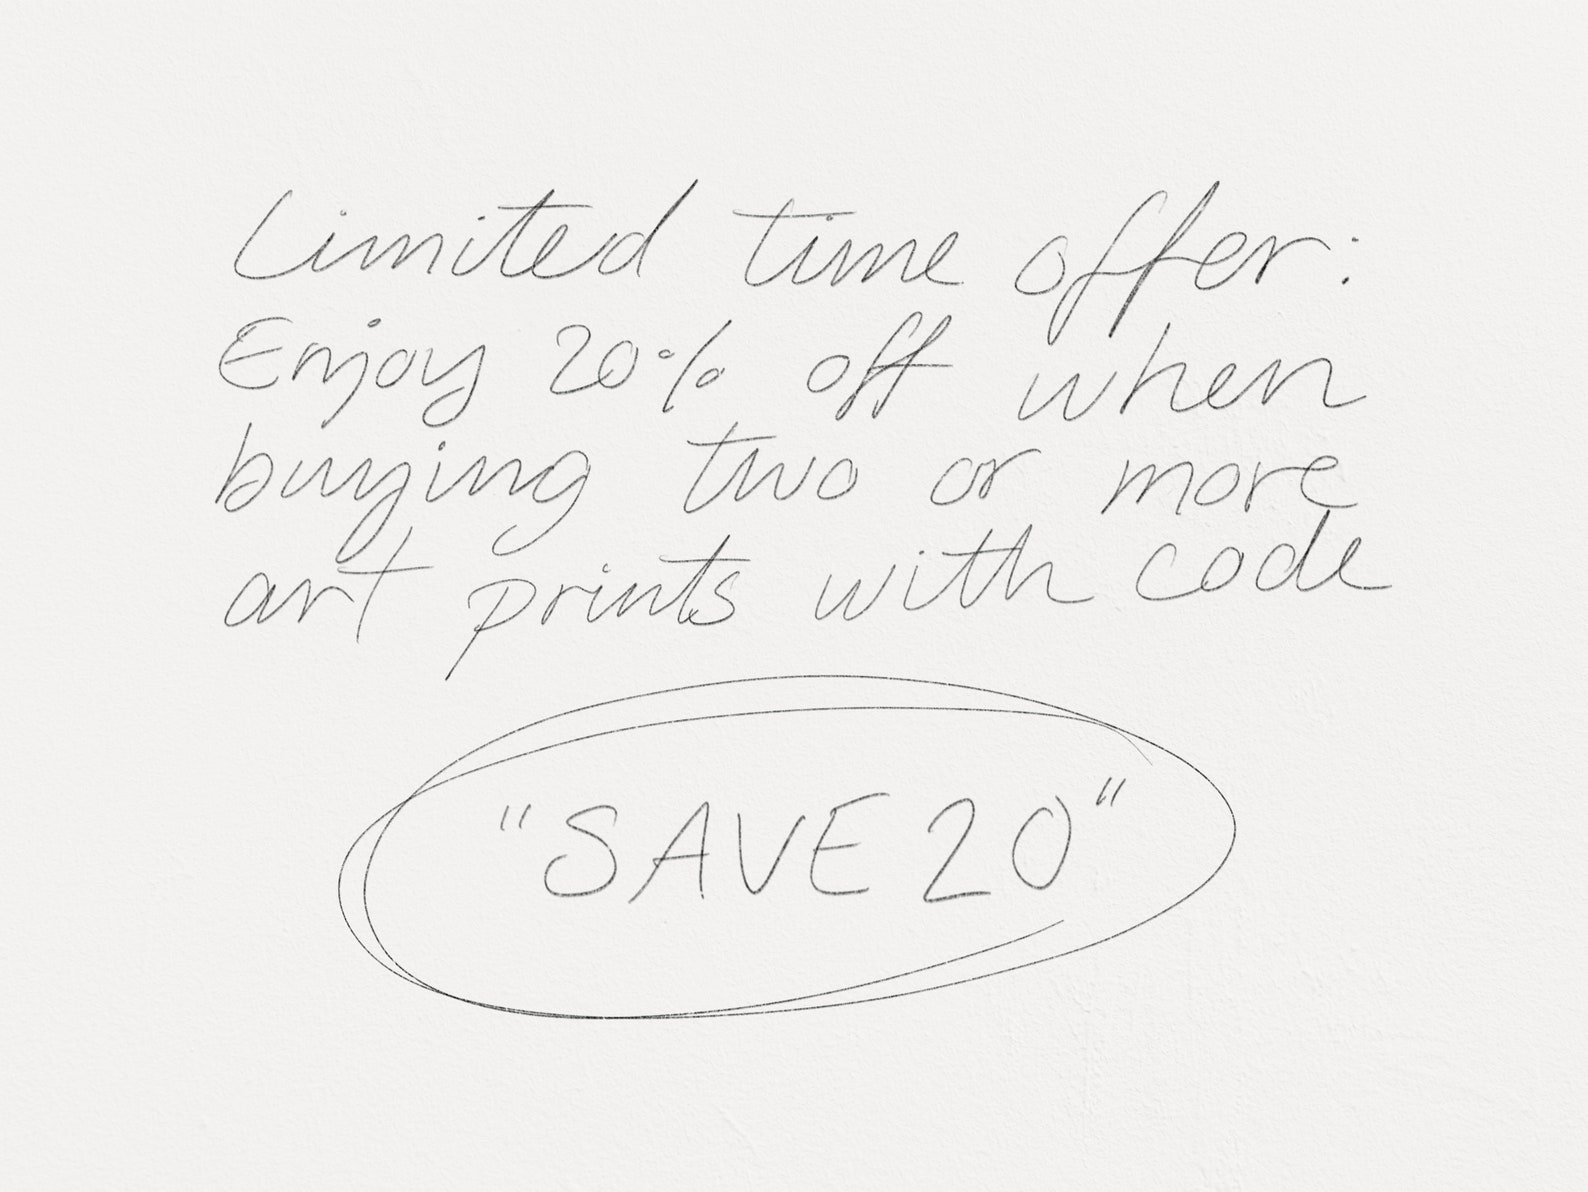 Limited time offer:
Enjoy 20% off when
buying two or more
art prints with code
"SAVE 20"